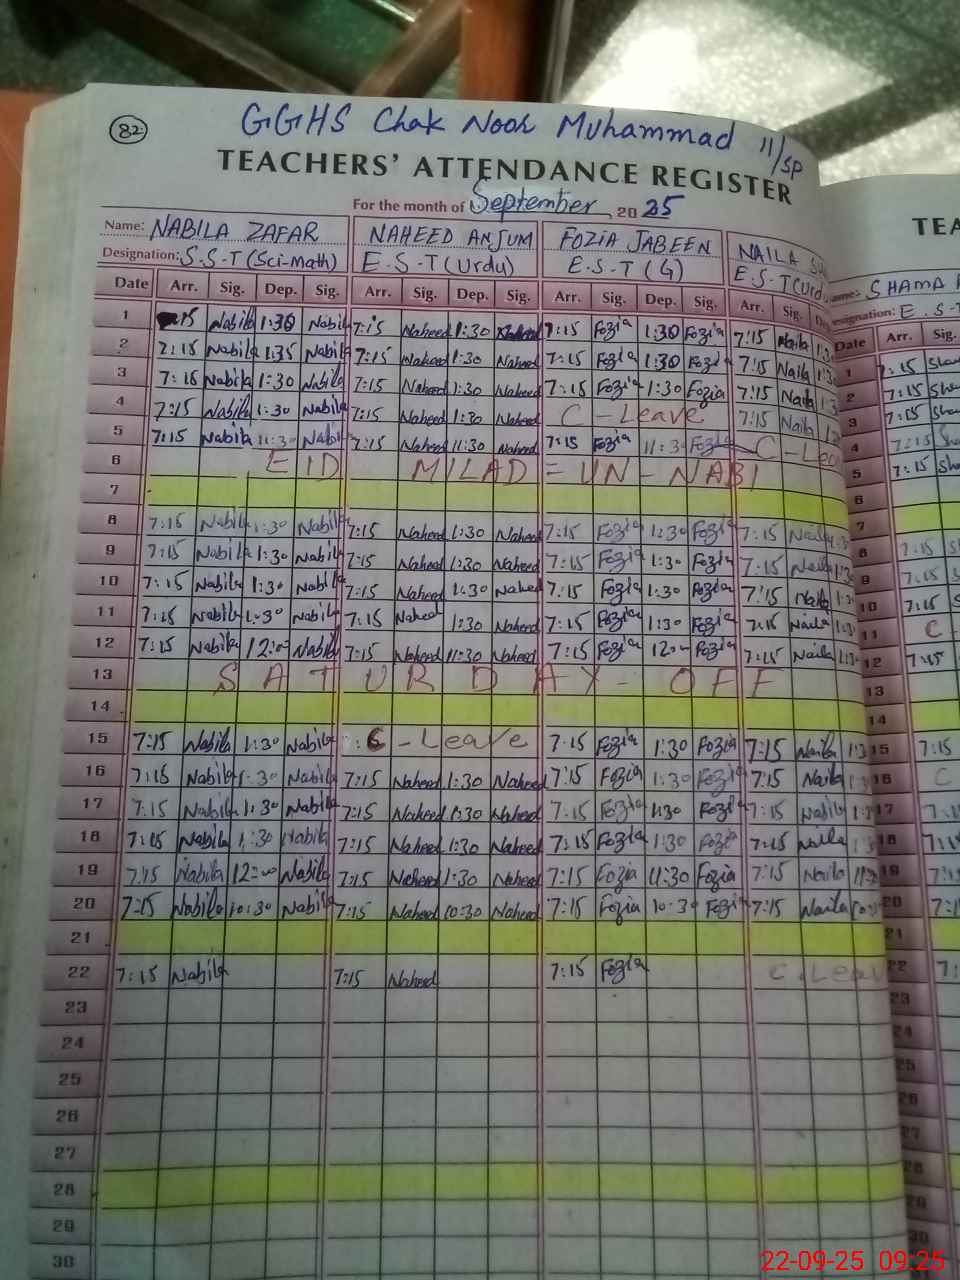 82
GGHS Chak Noor Muhammad 11/SP
TEACHERS' ATTENDANCE REGISTER
For the month of September, 2025
Name: NABILA ZAFAR NAHEED ANJUM FOZIA JABEEN NAILA
Designation: S.S.T (Sci-Math) E.S.T (Urdu) E.S.T (G) E.S.T (Urd
Date Arr. Sig. Dep. Sig. Arr. Sig. Dep. Sig. Arr. Sig. Dep. Sig. Arr. Sig.
1 :15 Nabila 1:30 Nabila 7:15 Naheed 1:30 Naheed 7:15 Fozia 1:30 Fozia 7:15 Naila
2 7:15 Nabila 1:35 Nabila 7:15 Naheed 1:30 Naheed 7:15 Fozia 1:30 Fozia 7:15 Naila
3 7:15 Nabila 1:30 Nabila 7:15 Naheed 1:30 Naheed 7:15 Fozia 1:30 Fozia 7:15 Naila
4 7:15 Nabila 1:30 Nabila 7:15 Naheed 1:30 Naheed C-Leave 7:15 Naila
5 7:15 Nabila 11:30 Nabila 7:15 Naheed 11:30 Naheed 7:15 Fozia 11:30 Fozia C-Lea
6 EID MILAD=UN-NABI
7
8 7:15 Nabila 1:30 Nabila 7:15 Naheed 1:30 Naheed 7:15 Fozia 1:30 Fozia 7:15 Naila
9 7:15 Nabila 1:30 Nabila 7:15 Naheed 1:30 Naheed 7:15 Fozia 1:30 Fozia 7:15 Naila
10 7:15 Nabila 1:30 Nabila 7:15 Naheed 1:30 Naheed 7:15 Fozia 1:30 Fozia 7:15 Naila
11 7:15 Nabila 1:30 Nabila 7:15 Naheed 1:30 Naheed 7:15 Fozia 1:30 Fozia 7:15 Naila
12 7:15 Nabila 12:00 Nabila 7:15 Naheed 11:30 Naheed 7:15 Fozia 12:00 Fozia 7:15 Naila
13 SATURDAY-OFF
14
15 7:15 Nabila 1:30 Nabila C-Leave 7:15 Fozia 1:30 Fozia 7:15 Naila
16 7:15 Nabila 1:30 Nabila 7:15 Naheed 1:30 Naheed 7:15 Fozia 1:30 Fozia 7:15 Naila
17 7:15 Nabila 1:30 Nabila 7:15 Naheed 1:30 Naheed 7:15 Fozia 1:30 Fozia 7:15
18 7:15 Nabila 1:30 Nabila 7:15 Naheed 1:30 Naheed 7:15 Fozia 1:30 Fozia 7:15 Naila
19 7:15 Nabila 12:00 Nabila 7:15 Naheed 1:30 Naheed 7:15 Fozia 11:30 Fozia 7:15 Naila
20 7:15 Nabila 10:30 Nabila 7:15 Naheed 10:30 Naheed 7:15 Fozia 10:30 Fozia 7:15 Naila
21
22 7:15 Nabila 7:15 Naheed 7:15 Fozia C.Leav
23
24
25
26
27
28
29
30
TEA
SHAMA
E.S.T
Date Arr. Sig.
1 7:15
2 7:15
3 7:15
4 7:15
5 7:15
6
7
8 7:15
9 7:15
10 7:15
11 C
12 7:15
13
14
15 7:15
16 C
17 7:1
18 7:1
19 7:1
20 7:1
21
22 7:
23
24
25
26
27
28
29
30
22-09-25 09:25